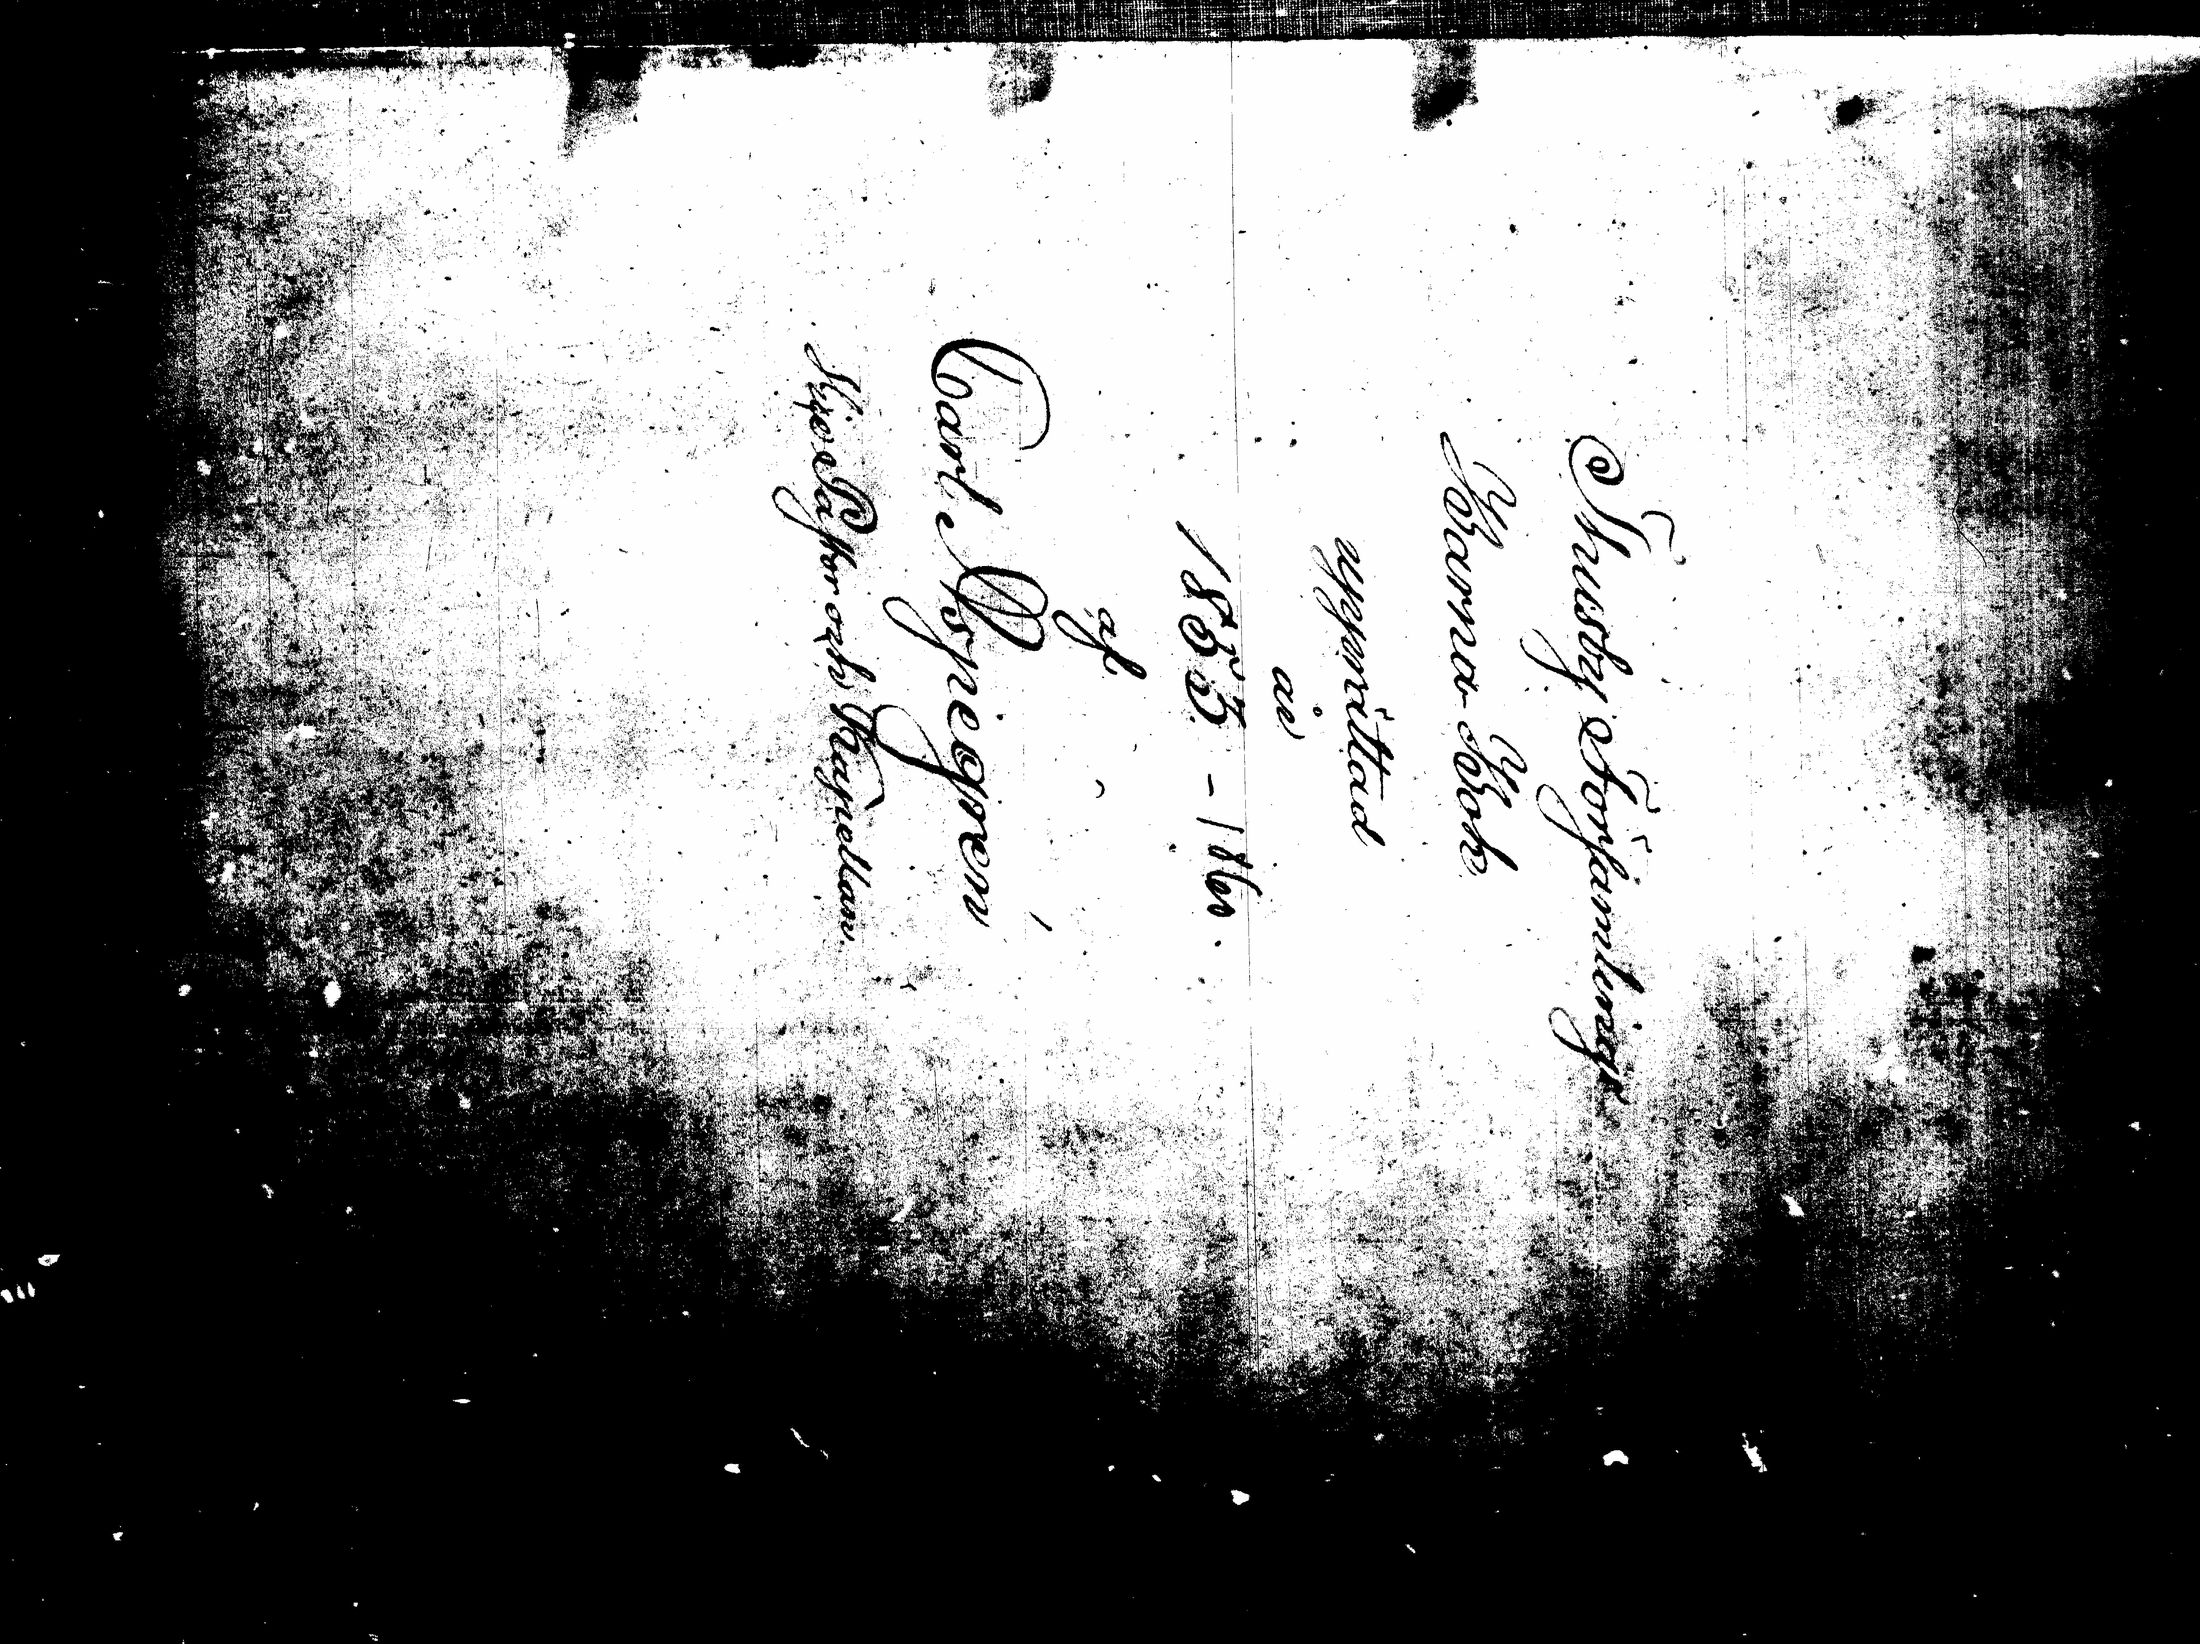 Thusby Församlings
Barna-Bok
upprättad
år
1855 - 1860.
af
Carl Nspregren
Vice Pastor och Kapellan.